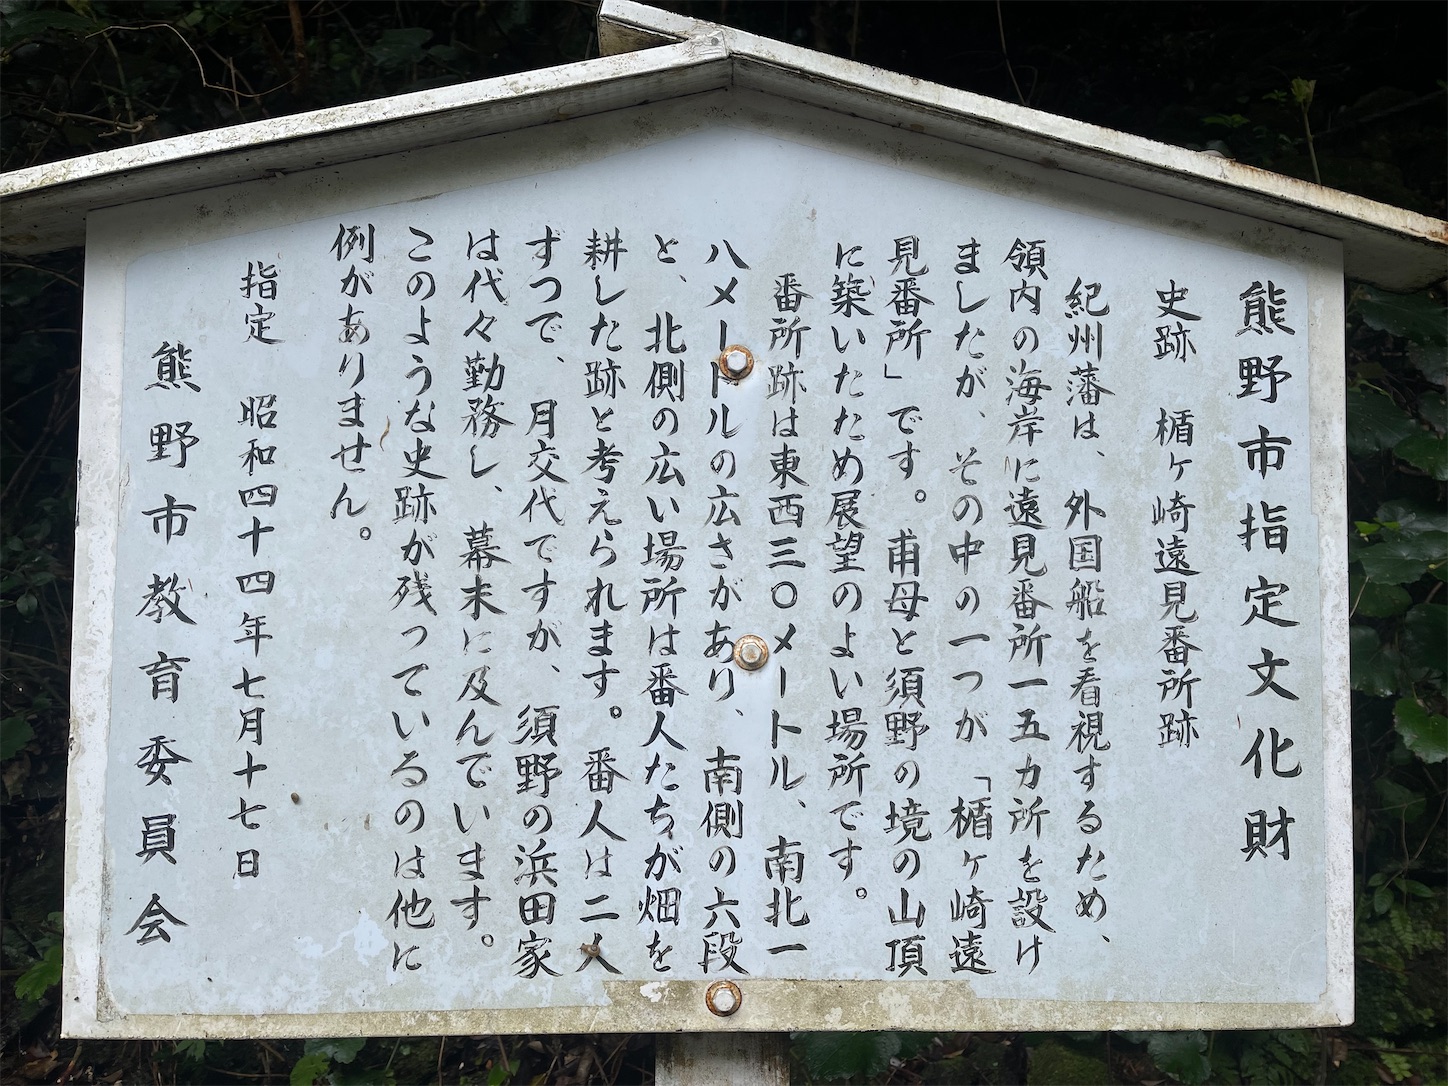 熊野市指定文化財
史跡　楯ヶ崎遠見番所跡
紀州藩は、外国船を看視するため、
領内の海岸に遠見番所一五カ所を設け
ましたが、その中の一つが「楯ヶ崎遠
見番所」です。甫母と須野の境の山頂
に築いたため展望のよい場所です。
番所跡は東西三〇メートル、南北一
八メートルの広さがあり、南側の六段
と、北側の広い場所は番人たちが畑を
耕した跡と考えられます。番人は二人
ずつで、月交代ですが、須野の浜田家
は代々勤務し、幕末に及んでいます。
このような史跡が残っているのは他に
例がありません。
指定　昭和四十四年七月十七日
熊野市教育委員会